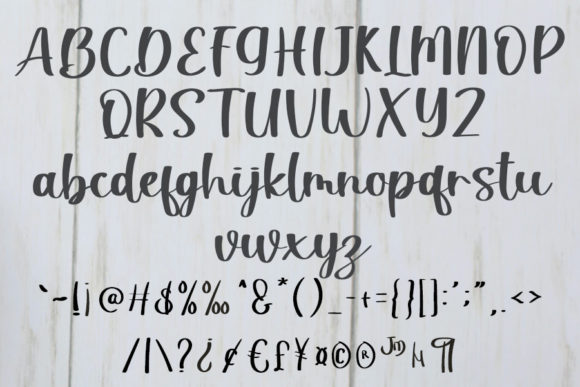 ABCDEFGHIJKLMNOP
QRSTUVWXYZ
abcdefghijklmnopqrstu
vwxyz
`~!¡@#$%‰^&*()_-+={}[]:';",.<>
/|\?¿¢€£¥¤©®™µ¶